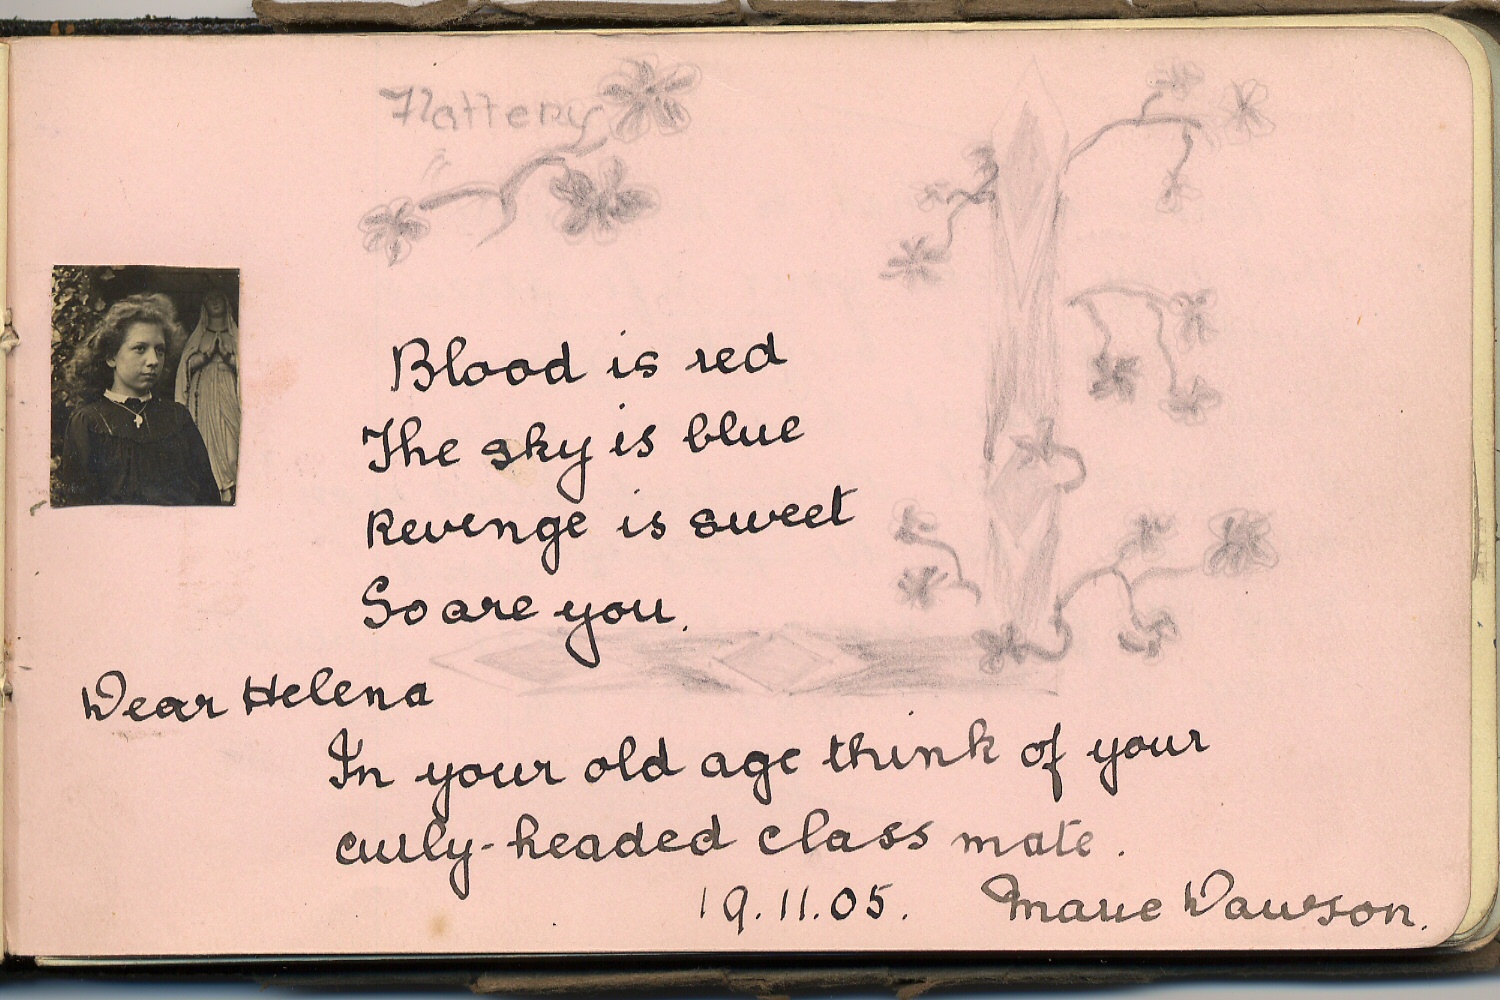 Flattery
Blood is red
The sky is blue
Revenge is sweet
So are you.
Dear Helena
In your old age think of your
curly-headed class mate.
19.11.05. Marie Dawson.